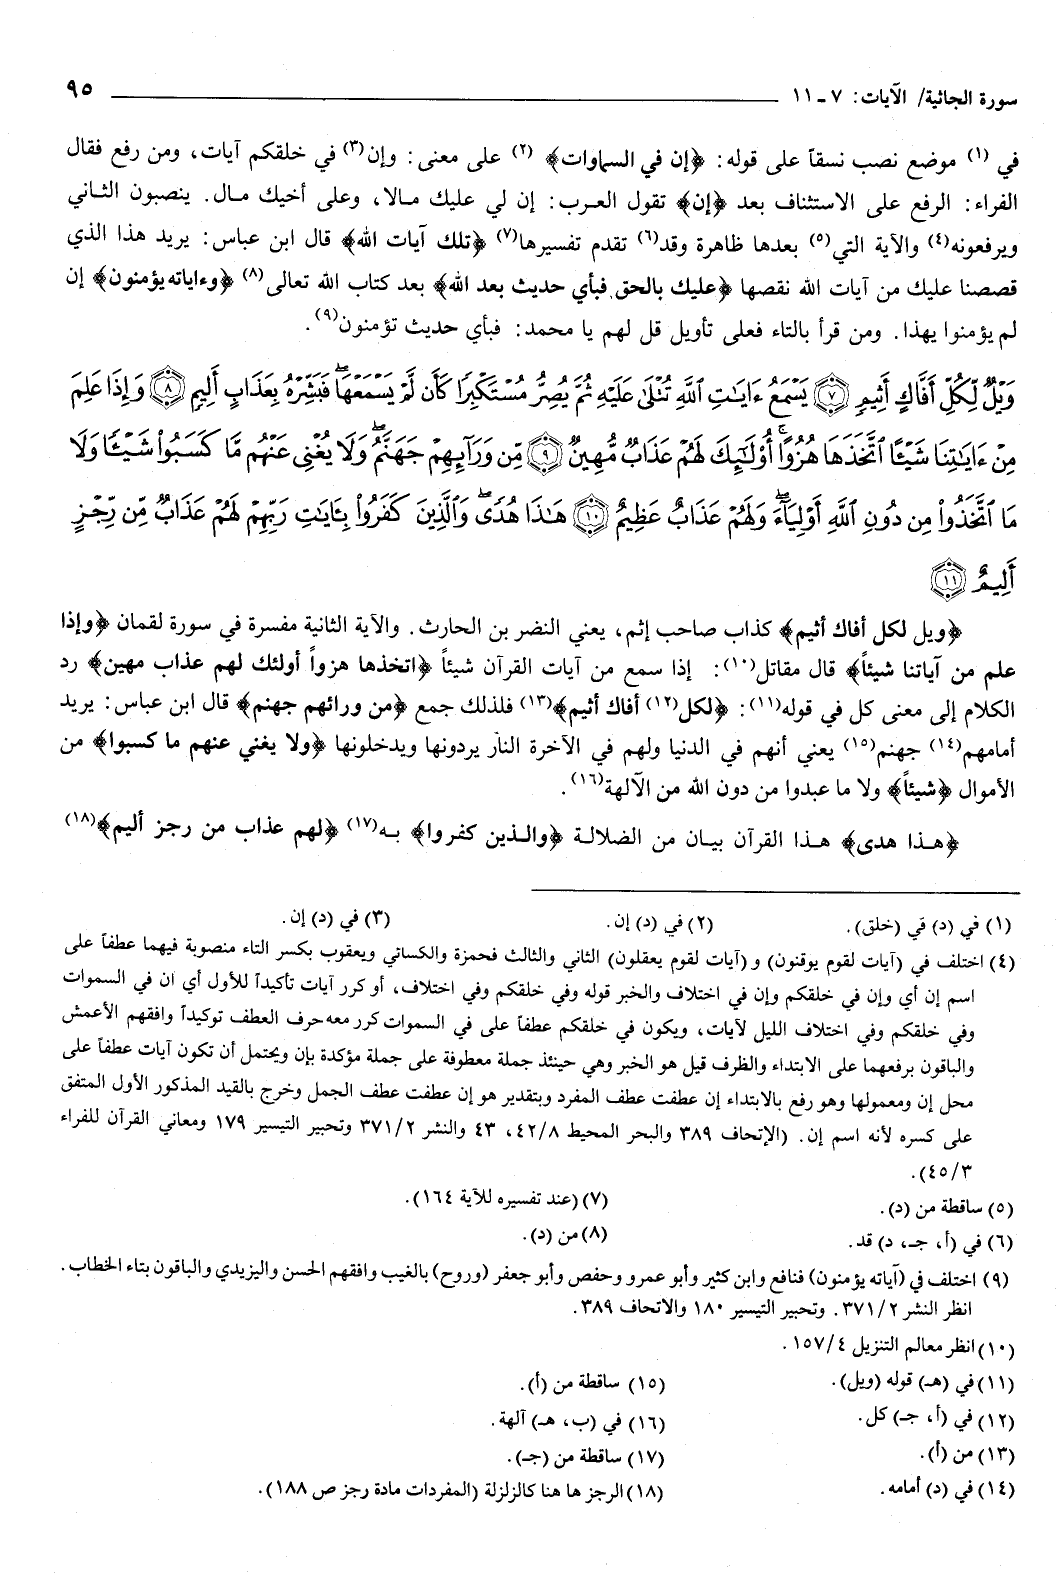 سورة الجاثية/ الآيات: ٧ ـ ١١ ٩٥
في (١) موضع نصب نسقاً على قوله: ﴿إن في السماوات﴾ (٢) على معنى: وإن(٣) في خلقكم آيات، ومن رفع فقال
الفراء: الرفع على الاستئناف بعد ﴿إن﴾ تقول العرب: إن لي عليك مالا، وعلى أخيك مال. ينصبون الثاني
ويرفعونه(٤) والآية التي(٥) بعدها ظاهرة وقد(٦) تقدم تفسيرها(٧) ﴿تلك آيات الله﴾ قال ابن عباس: يريد هذا الذي
قصصنا عليك من آيات الله نقصها ﴿عليك بالحق فبأي حديث بعد الله﴾ بعد كتاب الله تعالى(٨) ﴿وءاياته يؤمنون﴾ إن
لم يؤمنوا بهذا. ومن قرأ بالتاء فعلى تأويل قل لهم يا محمد: فبأي حديث تؤمنون(٩).
وَيْلٌ لِّكُلِّ أَفَّاكٍ أَثِيمٍ ﴿٧﴾ يَسْمَعُ ءَايَٰتِ ٱللَّهِ تُتْلَىٰ عَلَيْهِ ثُمَّ يُصِرُّ مُسْتَكْبِرًا كَأَن لَّمْ يَسْمَعْهَا ۖ فَبَشِّرْهُ بِعَذَابٍ أَلِيمٍ ﴿٨﴾ وَإِذَا عَلِمَ
مِنْ ءَايَٰتِنَا شَيْـًٔا ٱتَّخَذَهَا هُزُوًا ۚ أُو۟لَٰٓئِكَ لَهُمْ عَذَابٌ مُّهِينٌ ﴿٩﴾ مِّن وَرَآئِهِمْ جَهَنَّمُ ۖ وَلَا يُغْنِى عَنْهُم مَّا كَسَبُوا۟ شَيْـًٔا وَلَا
مَا ٱتَّخَذُوا۟ مِن دُونِ ٱللَّهِ أَوْلِيَآءَ ۖ وَلَهُمْ عَذَابٌ عَظِيمٌ ﴿١٠﴾ هَٰذَا هُدًى ۖ وَٱلَّذِينَ كَفَرُوا۟ بِـَٔايَٰتِ رَبِّهِمْ لَهُمْ عَذَابٌ مِّن رِّجْزٍ
أَلِيمٌ ﴿١١﴾
﴿ويل لكل أفاك أثيم﴾ كذاب صاحب إثم، يعني النضر بن الحارث. والآية الثانية مفسرة في سورة لقمان ﴿وإذا
علم من آياتنا شيئاً﴾ قال مقاتل(١٠): إذا سمع من آيات القرآن شيئاً ﴿اتخذها هزواً أولئك لهم عذاب مهين﴾ رد
الكلام إلى معنى كل في قوله(١١): ﴿لكل(١٢) أفاك أثيم﴾(١٣) فلذلك جمع ﴿من ورائهم جهنم﴾ قال ابن عباس: يريد
أمامهم(١٤) جهنم(١٥) يعني أنهم في الدنيا ولهم في الآخرة النار يردونها ويدخلونها ﴿ولا يغني عنهم ما كسبوا﴾ من
الأموال ﴿شيئاً﴾ ولا ما عبدوا من دون الله من الآلهة(١٦).
﴿هذا هدى﴾ هذا القرآن بيان من الضلالة ﴿والذين كفروا﴾ به(١٧) ﴿لهم عذاب من رجز أليم﴾(١٨)
(١) في (د) قي (خلق). (٢) في (د) إن. (٣) في (د) إن.
(٤) اختلف في (آيات لقوم يوقنون) و(آيات لقوم يعقلون) الثاني والثالث فحمزة والكسائي ويعقوب بكسر التاء منصوبة فيهما عطفاً على
اسم إن أي وإن في خلقكم وإن في اختلاف والخبر قوله وفي خلقكم وفي اختلاف، أو كرر آيات تأكيداً للأول أي ان في السموات
وفي خلقكم وفي اختلاف الليل لآيات، ويكون في خلقكم عطفاً على في السموات كرر معه حرف العطف توكيداً وافقهم الأعمش
والباقون برفعهما على الابتداء والظرف قيل هو الخبر وهي حينئذ جملة معطوفة على جملة مؤكدة بإن ويحتمل أن تكون آيات عطفاً على
محل إن ومعمولها وهو رفع بالابتداء إن عطفت عطف المفرد وبتقدير هو إن عطفت عطف الجمل وخرج بالقيد المذكور الأول المتفق
على كسره لأنه اسم إن. (الإتحاف ٣٨٩ والبحر المحيط ٤٢/٨، ٤٣ والنشر ٣٧١/٢ وتحبير التيسير ١٧٩ ومعاني القرآن للفراء
٤٥/٣).
(٥) ساقطة من (د). (٧) (عند تفسيره للآية ١٦٤).
(٦) في (أ، جـ، د) قد. (٨) من (د).
(٩) اختلف في (آياته يؤمنون) فنافع وابن كثير وأبو عمرو وحفص وأبو جعفر (وروح) بالغيب وافقهم الحسن واليزيدي والباقون بتاء الخطاب.
انظر النشر ٣٧١/٢. وتحبير التيسير ١٨٠ والاتحاف ٣٨٩.
(١٠) انظر معالم التنزيل ١٥٧/٤.
(١١) في (هـ) قوله (ويل). (١٥) ساقطة من (أ).
(١٢) في (أ، جـ) كل. (١٦) في (ب، هـ) آلهة.
(١٣) من (أ). (١٧) ساقطة من (جـ).
(١٤) في (د) أمامه. (١٨) الرجز ها هنا كالزلزلة (المفردات مادة رجز ص ١٨٨).